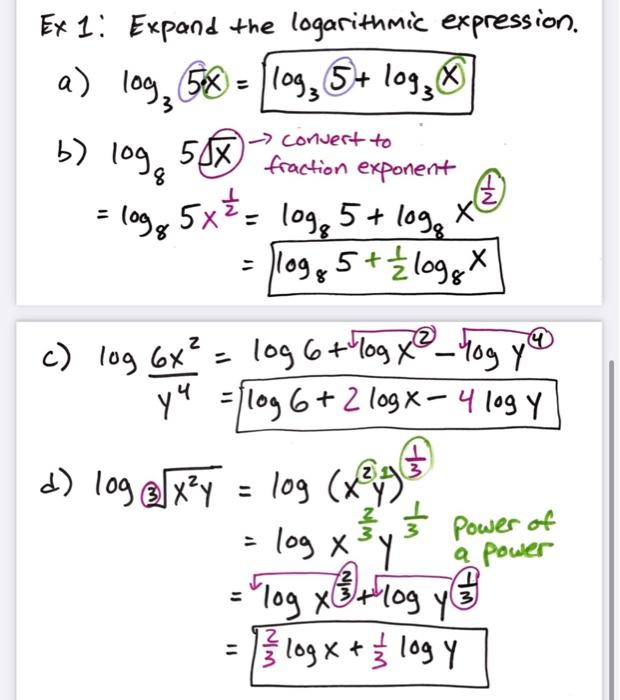 Ex 1: Expand the logarithmic expression.
a) log₃ 5x = log₃ 5 + log₃ x
b) log₈ 5√x → convert to
fraction exponent
= log₈ 5x^½ = log₈ 5 + log₈ x^½
= log₈ 5 + ½ log₈ x
c) log 6x²/y⁴ = log 6 + log x² − log y⁴
= log 6 + 2 log x − 4 log y
d) log ³√x²y = log (x²y¹)^⅓
= log x^⅔ y^⅓ Power of
a power
= log x^⅔ + log y^⅓
= ⅔ log x + ⅓ log y